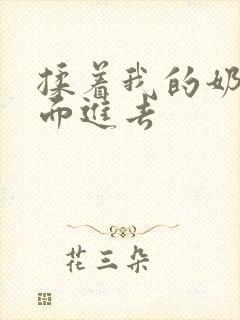 揉着我的奶
而進去
花三朵